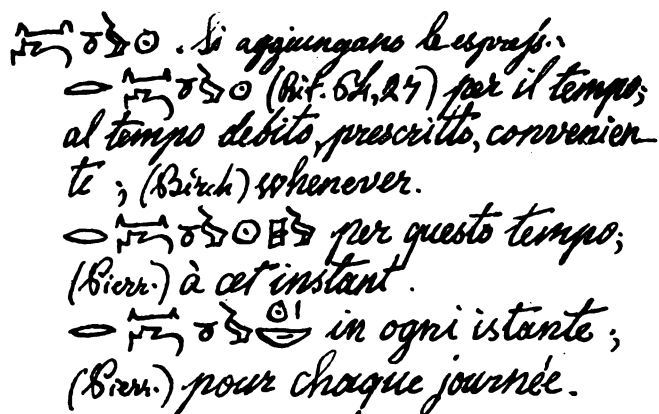 . Si aggiungano le espress.:
(Rit. 64,27) per il tempo;
al tempo debito, prescritto, convenien-
te; (Birch) whenever.
per questo tempo;
(Pierr.) à cet instant.
in ogni istante;
(Pierr.) pour chaque journée.